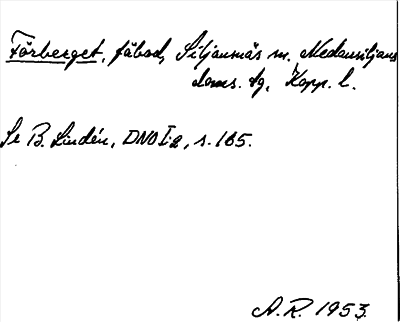 Förberget, fäbod, Siljansnäs sn. Nedansiljans
doms. tg, Kopp. l.
Se B. Lindén, DNO I:2, s. 165.
A. R. 1953.